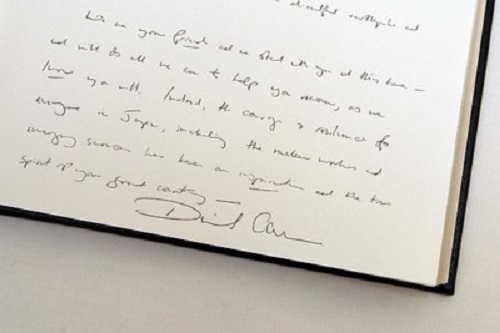 dreadful earthquake and
We are your friends and we stand with you at this time –
and will do all we can to help you recover, as we
know you will. Indeed, the courage & resilience of
everyone in Japan, including the nuclear workers and
emergency services has been an inspiration and the true
spirit of your great country –
David Cam